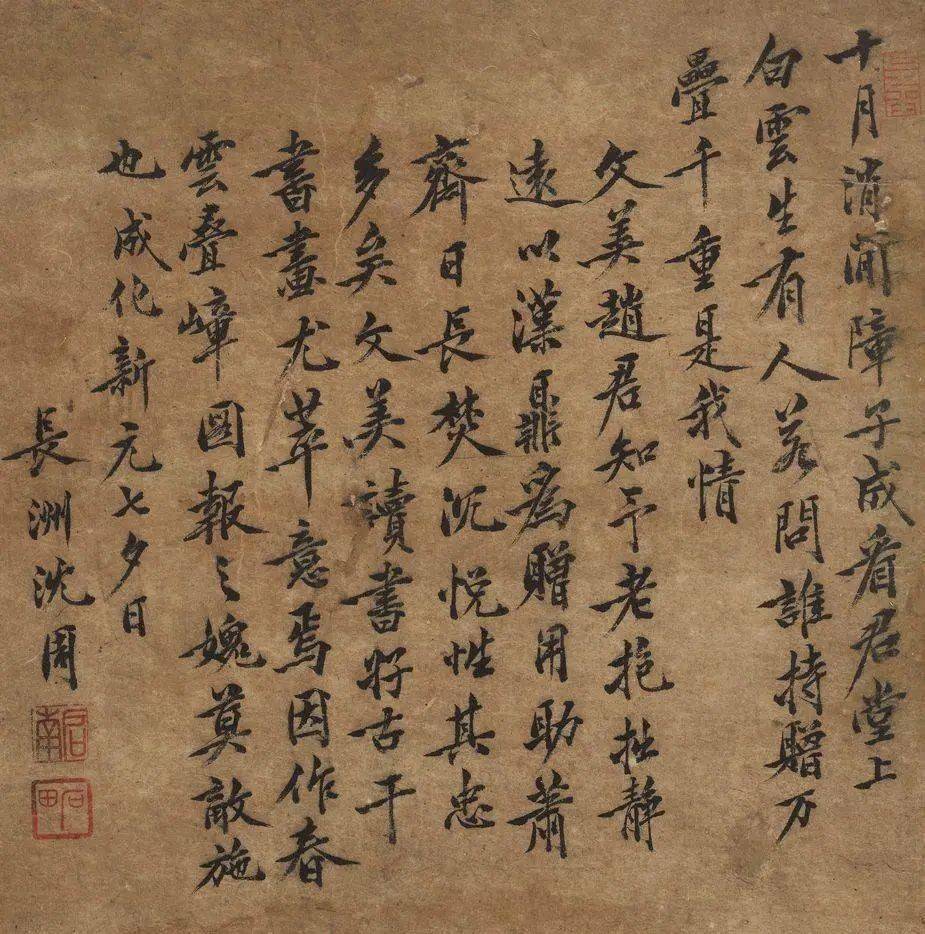 十月消閒障子成看君堂上
白雲生有人若問誰持贈万
疊千重是我情
文美趙君知予老抱拙靜
遠以漢鼎爲贈用助蕭
齋日長焚沉悅性其惠
多矣文美讀書好古于
書畫尤萃意焉因作春
雲叠嶂圖報之媿莫敵施
也成化新元七夕日
長洲沈周
啟南
石田